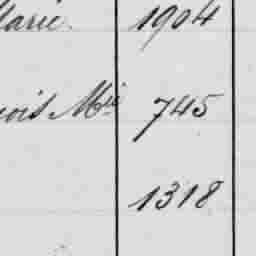 Marie. 1904
ois Mie 745
1318